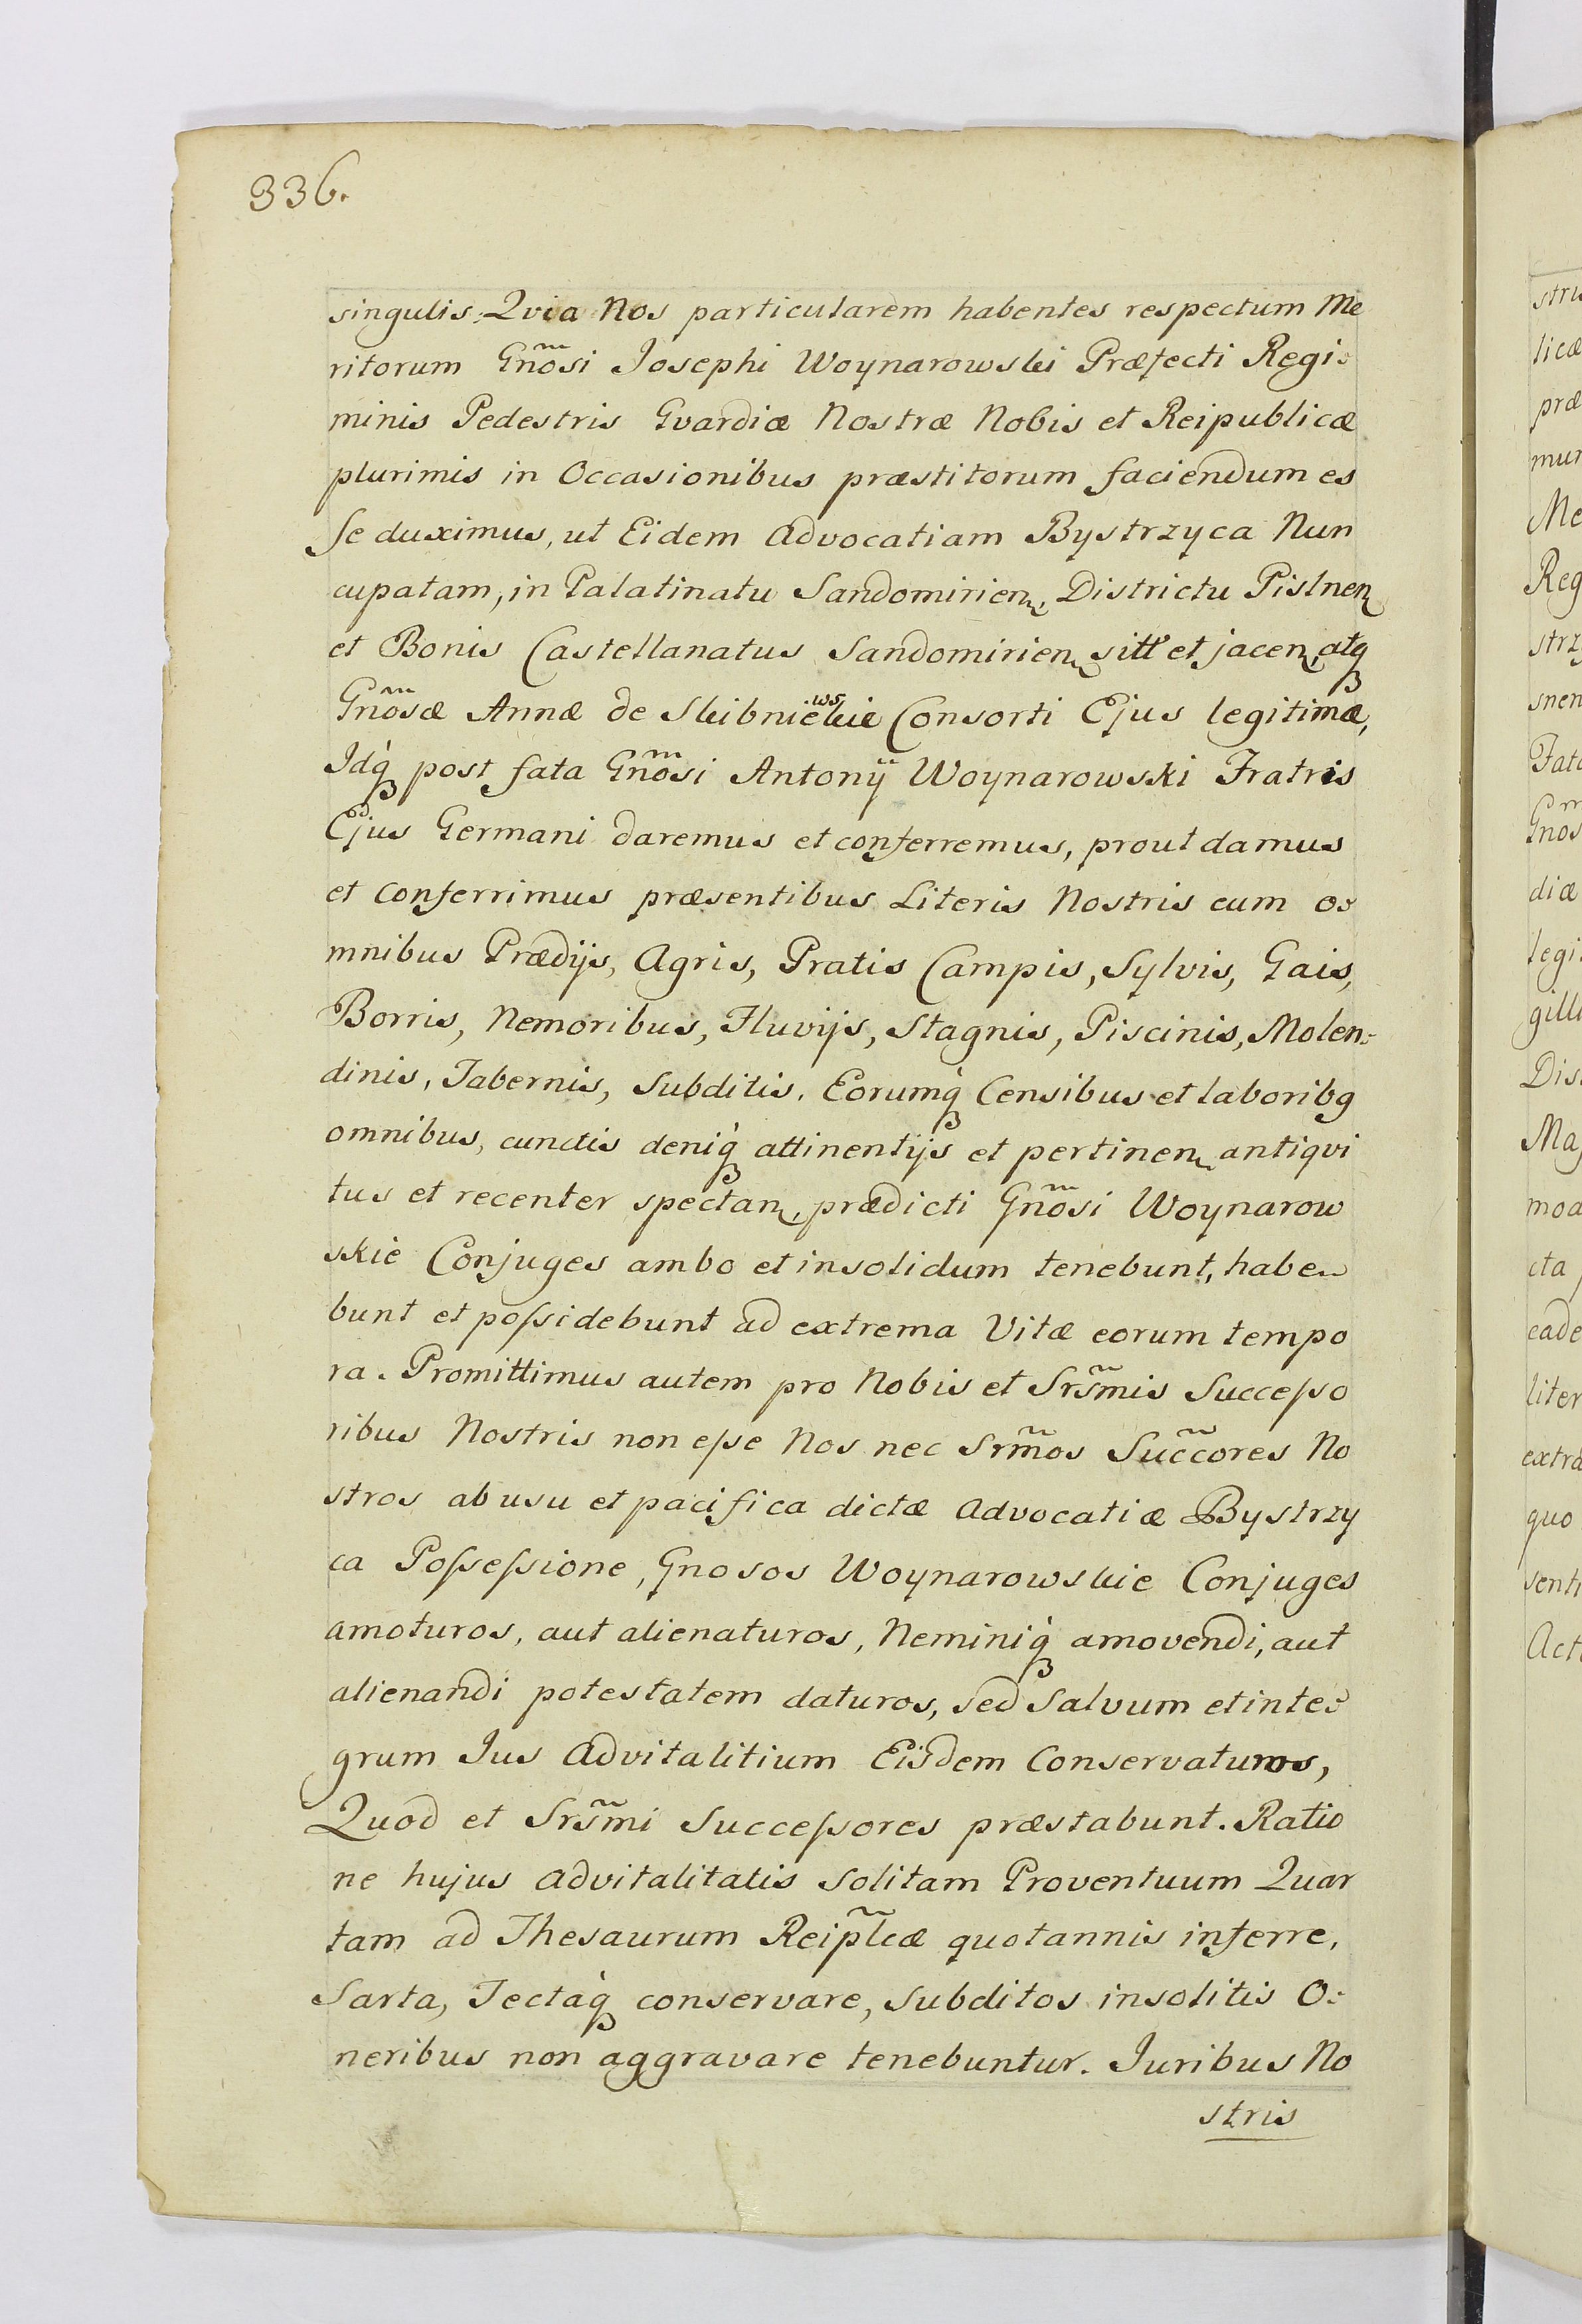 336.
singulis; Qvia Nos particularem habentes respectum Me
ritorum Gnosi Josephi Woynarowski Præfecti Regi=
minis Pedestris Gvardiæ Nostræ Nobis et Reipublicæ
plurimis in Occasionibus præstitorum faciendum es
se duximus, ut Eidem Advocatiam Bystrzyca Nun
cupatam, in Palatinatu Sandomirien, Districtu Pislnen
et Bonis Castellanatus Sandomirien sitt et jacen, atq
Gnosæ Annæ de Skibniewskie Consorti Ejus legitimæ,
Idq post fata Gnosi Antonij Woynarowski Fratris
Ejus Germani daremus et conferremus, prout damus
et conferrimus præsentibus Literis Nostris cum o=
mnibus Prædijs, Agris, Pratis Campis, Sylvis, Gais,
Borris, Nemoribus, Fluvijs, Stagnis, Piscinis, Molen=
dinis, Tabernis, Subditis, Eorumq Censibus et laboribg
omnibus, cunctis deniq attinentijs et pertinen antiqvi
tus et recenter spectan, prædicti Gnosi Woynarow
skie Conjuges ambo et insolidum tenebunt, habe=
bunt et poſsidebunt ad extrema Vitæ eorum tempo
ra. Promittimus autem pro Nobis et Srsmis Succeſso
ribus Nostris non eſse Nos nec Srmos Succores No
stros ab usu et pacifica dictæ Advocatiæ Bystrzy
ca Poſseſsione, Gnosos Woynarowskie Conjuges
amoturos, aut alienaturos, Neminiq amovendi, aut
alienandi potestatem daturos, sed Salvum et inte=
grum Jus Advitalitium Eisdem Conservaturos,
Quod et Srsmi Succeſsores præstabunt. Ratio
ne hujus Advitalitatis Solitam Proventuum Quar
tam ad Thesaurum Reiplcæ quotannis inferre,
Sarta, Tectaq conservare, Subditos insolitis O=
neribus non aggravare tenebuntur. Juribus No
stris
stru
licæ
præ
mur
Me
Reg
strz
snen
Fata
Gnos
diæ
legi
gilli
Dis
Maj
moa
cta
eade
liter
extra
quo
senti
Act